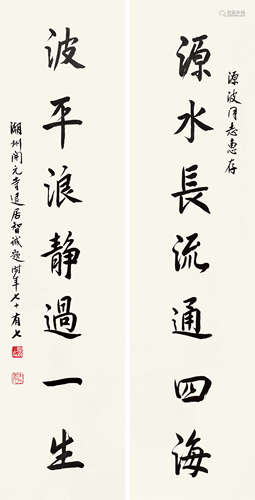 源波同志惠存
源水長流通四海
波平浪静過一生
潮州開元寺退居智诚题时年七十有七